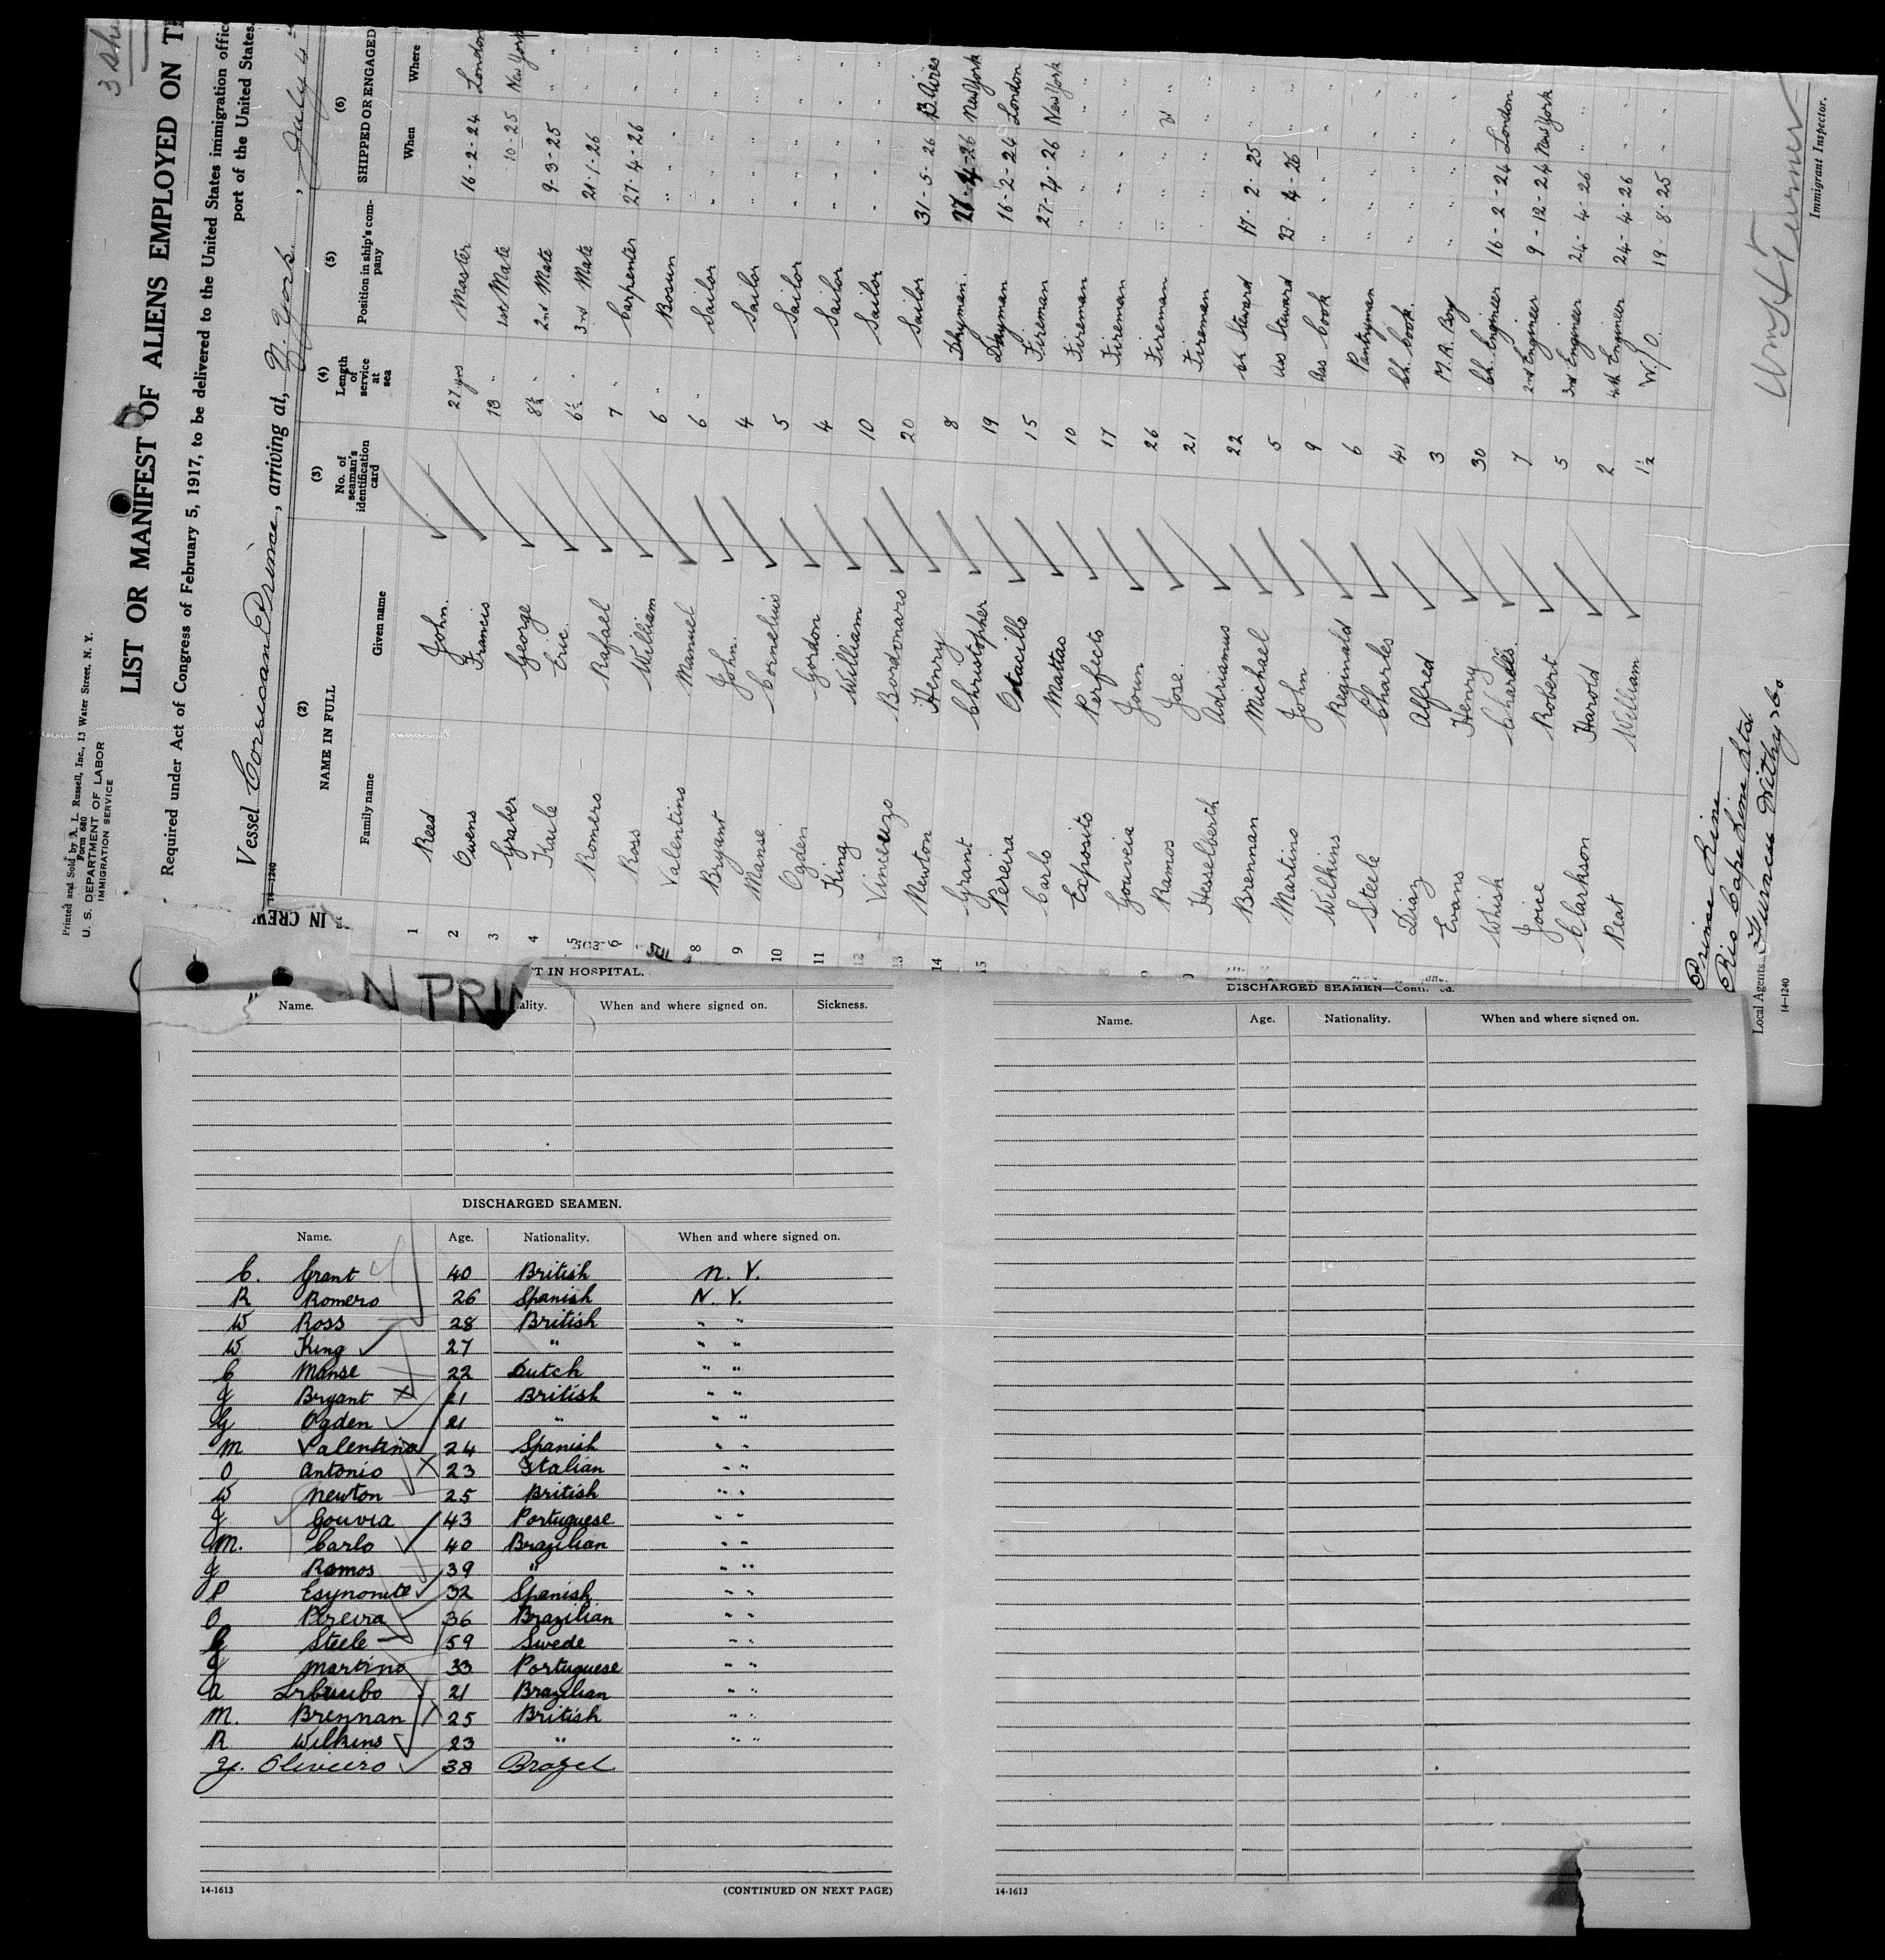 3
Printed and Sold by A. L. Russell, Inc., 13 Water Street, N. Y.
Form 680
U. S. DEPARTMENT OF LABOR
IMMIGRATION SERVICE
LIST OR MANIFEST OF ALIENS EMPLOYED ON
Required under Act of Congress of February 5, 1917, to be delivered to the United States immigration
port of the United States
Vessel Corsican Prince, arriving at, N. York, July 4
14-1240
(2) (3) (4) (5) (6)
NAME IN FULL No. of seaman's identification card Length of service at sea Position in ship's company SHIPPED OR ENGAGED
Family name Given name When Where
1 Reed John. 27 yrs Master 16-2-24 London
2 Owens Francis 13 " 1st Mate 10-25 New York
3 Graber George 8½ " 2nd Mate 9-3-25 "
4 Kaile Eric. 6½ " 3rd Mate 21-1-26 "
5 Romero Rafael 7 " Carpenter 27-4-26 "
6 Ross William 6 " Bosun " "
7 Valentino Manuel 6 " Sailor " "
8 Bryant John. 4 Sailor " "
9 Manse Cornelius 5 Sailor " "
10 Ogden Gordon 4 Sailor " "
11 King William 10 Sailor " "
12 Vincenzo Bordonaro 20 Sailor 31-5-26 B. Aires
13 Newton Henry 8 Dkyman. 27-4-26 New York
14 Grant Christopher 19 Dkyman 16-2-24 London
15 Pereira Otacillo 15 Fireman 27-4-26 New York
Carlo Mattas 10 Fireman " "
Exposito Perfecto 17 Fireman " "
Gouveia Joun 26 Fireman " "
Ramos Jose. 21 Fireman " "
Hesselberth Adrianus 22 Ch Steward 17-2-25 "
Brennan Michael 5 Ass Steward 23-4-26 "
Martino John 9 Ass Cook " "
Wilkins Reginald 6 Pantryman " "
Steele Charles 41 Ch. Cook. " "
Diaz Alfred 3 M. R. Boy " "
Evans Henry 30 Ch. Engineer 16-2-24 London
Whish Charles. 7 2nd Engineer 9-12-24 New York
Joice Robert 5 3rd Engineer 24-4-26 "
Clarkson Harold 2 4th Engineer 24-4-26 "
Peat William 1½ W/O. 19-8-25 "
Prince Line
Rio Cape Line Ltd.
Local Agents Furness Withy & Co
14-1240
Wm H Turner
Immigrant Inspector.
IN CREW
N PRIN
T IN HOSPITAL.
Name. ality. When and where signed on. Sickness.
DISCHARGED SEAMEN.
Name. Age. Nationality. When and where signed on.
C. Grant 40 British N. Y.
R Romero 26 Spanish N. Y.
W Ross 28 British " "
W King 27 " " "
C Manse 22 Dutch " "
J Bryant 21 British " "
G Ogden 21 " " "
M Valentino 24 Spanish " "
O Antonio 23 Italian " "
W Newton 25 British " "
J Gouvia 43 Portuguese " "
M. Carlo 40 Brazilian " "
J Ramos 39 " " "
P 32 Spanish " "
O Pereira 36 Brazilian " "
Steele 59 Swede " "
J Martino 33 Portuguese " "
A 21 Brazilian " "
M. Brennan 25 British " "
R Wilkins 23 " " "
Y. Oliveiro 38 Brazel
14-1613 (CONTINUED ON NEXT PAGE)
DISCHARGED SEAMEN—Conti ed.
Name. Age. Nationality. When and where signed on.
14-1613